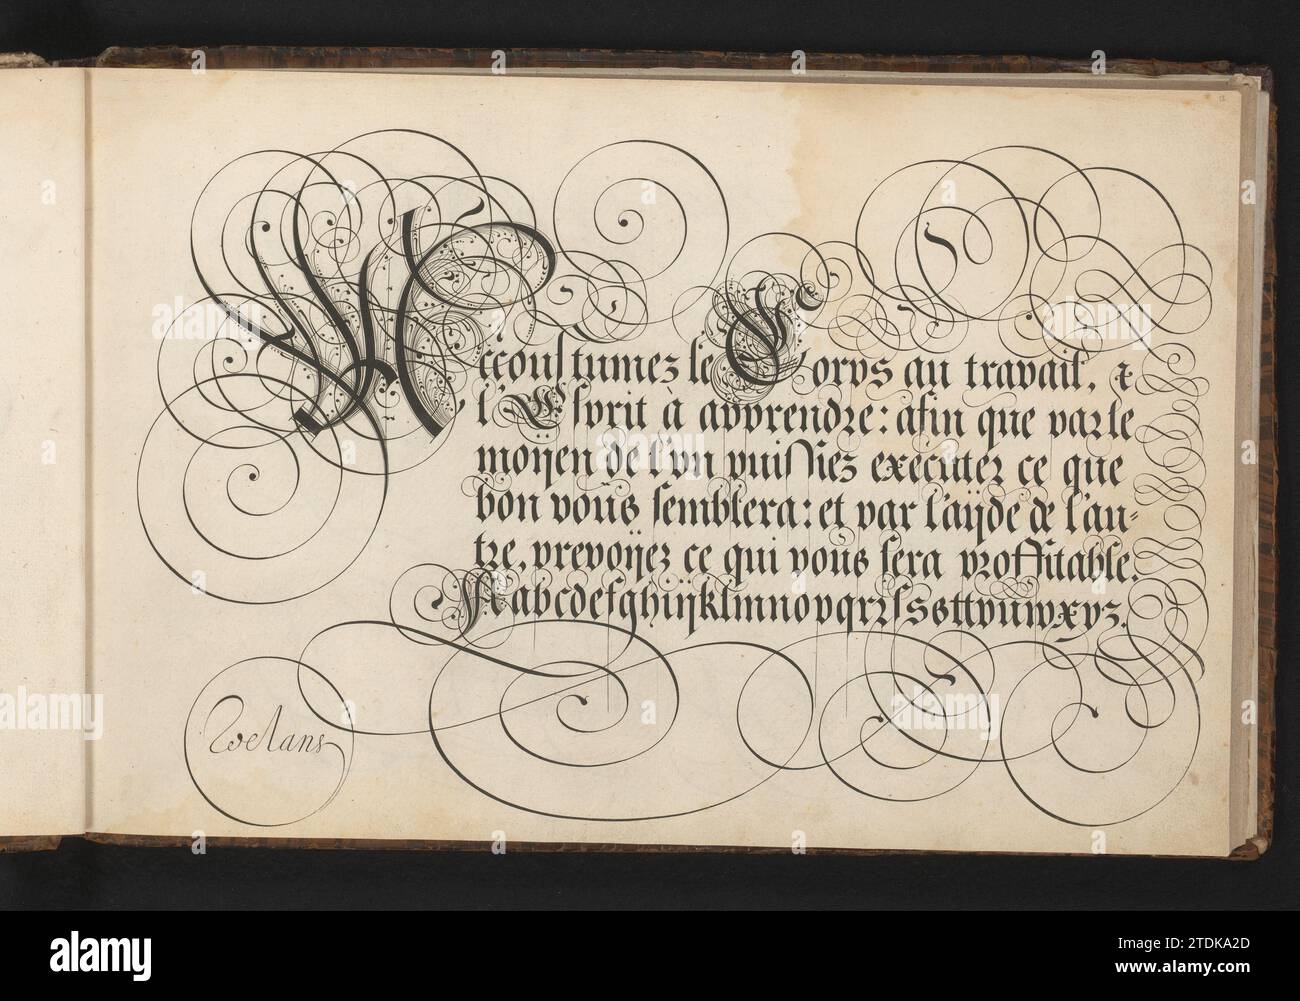 Accoustumez le Corps au travail, &
l'Esprit à apprendre: afin que par le
moyen de l'un puissiez executer ce que
bon voùs semblera: et par l'aÿde de l'au-
tre, prevoÿez ce qui voùs sera proffitable.
Aabcdefghiÿklmnopqrrſssttvuwxyz.
Roelans
alamy
Image ID: 2TDKA2D
www.alamy.com